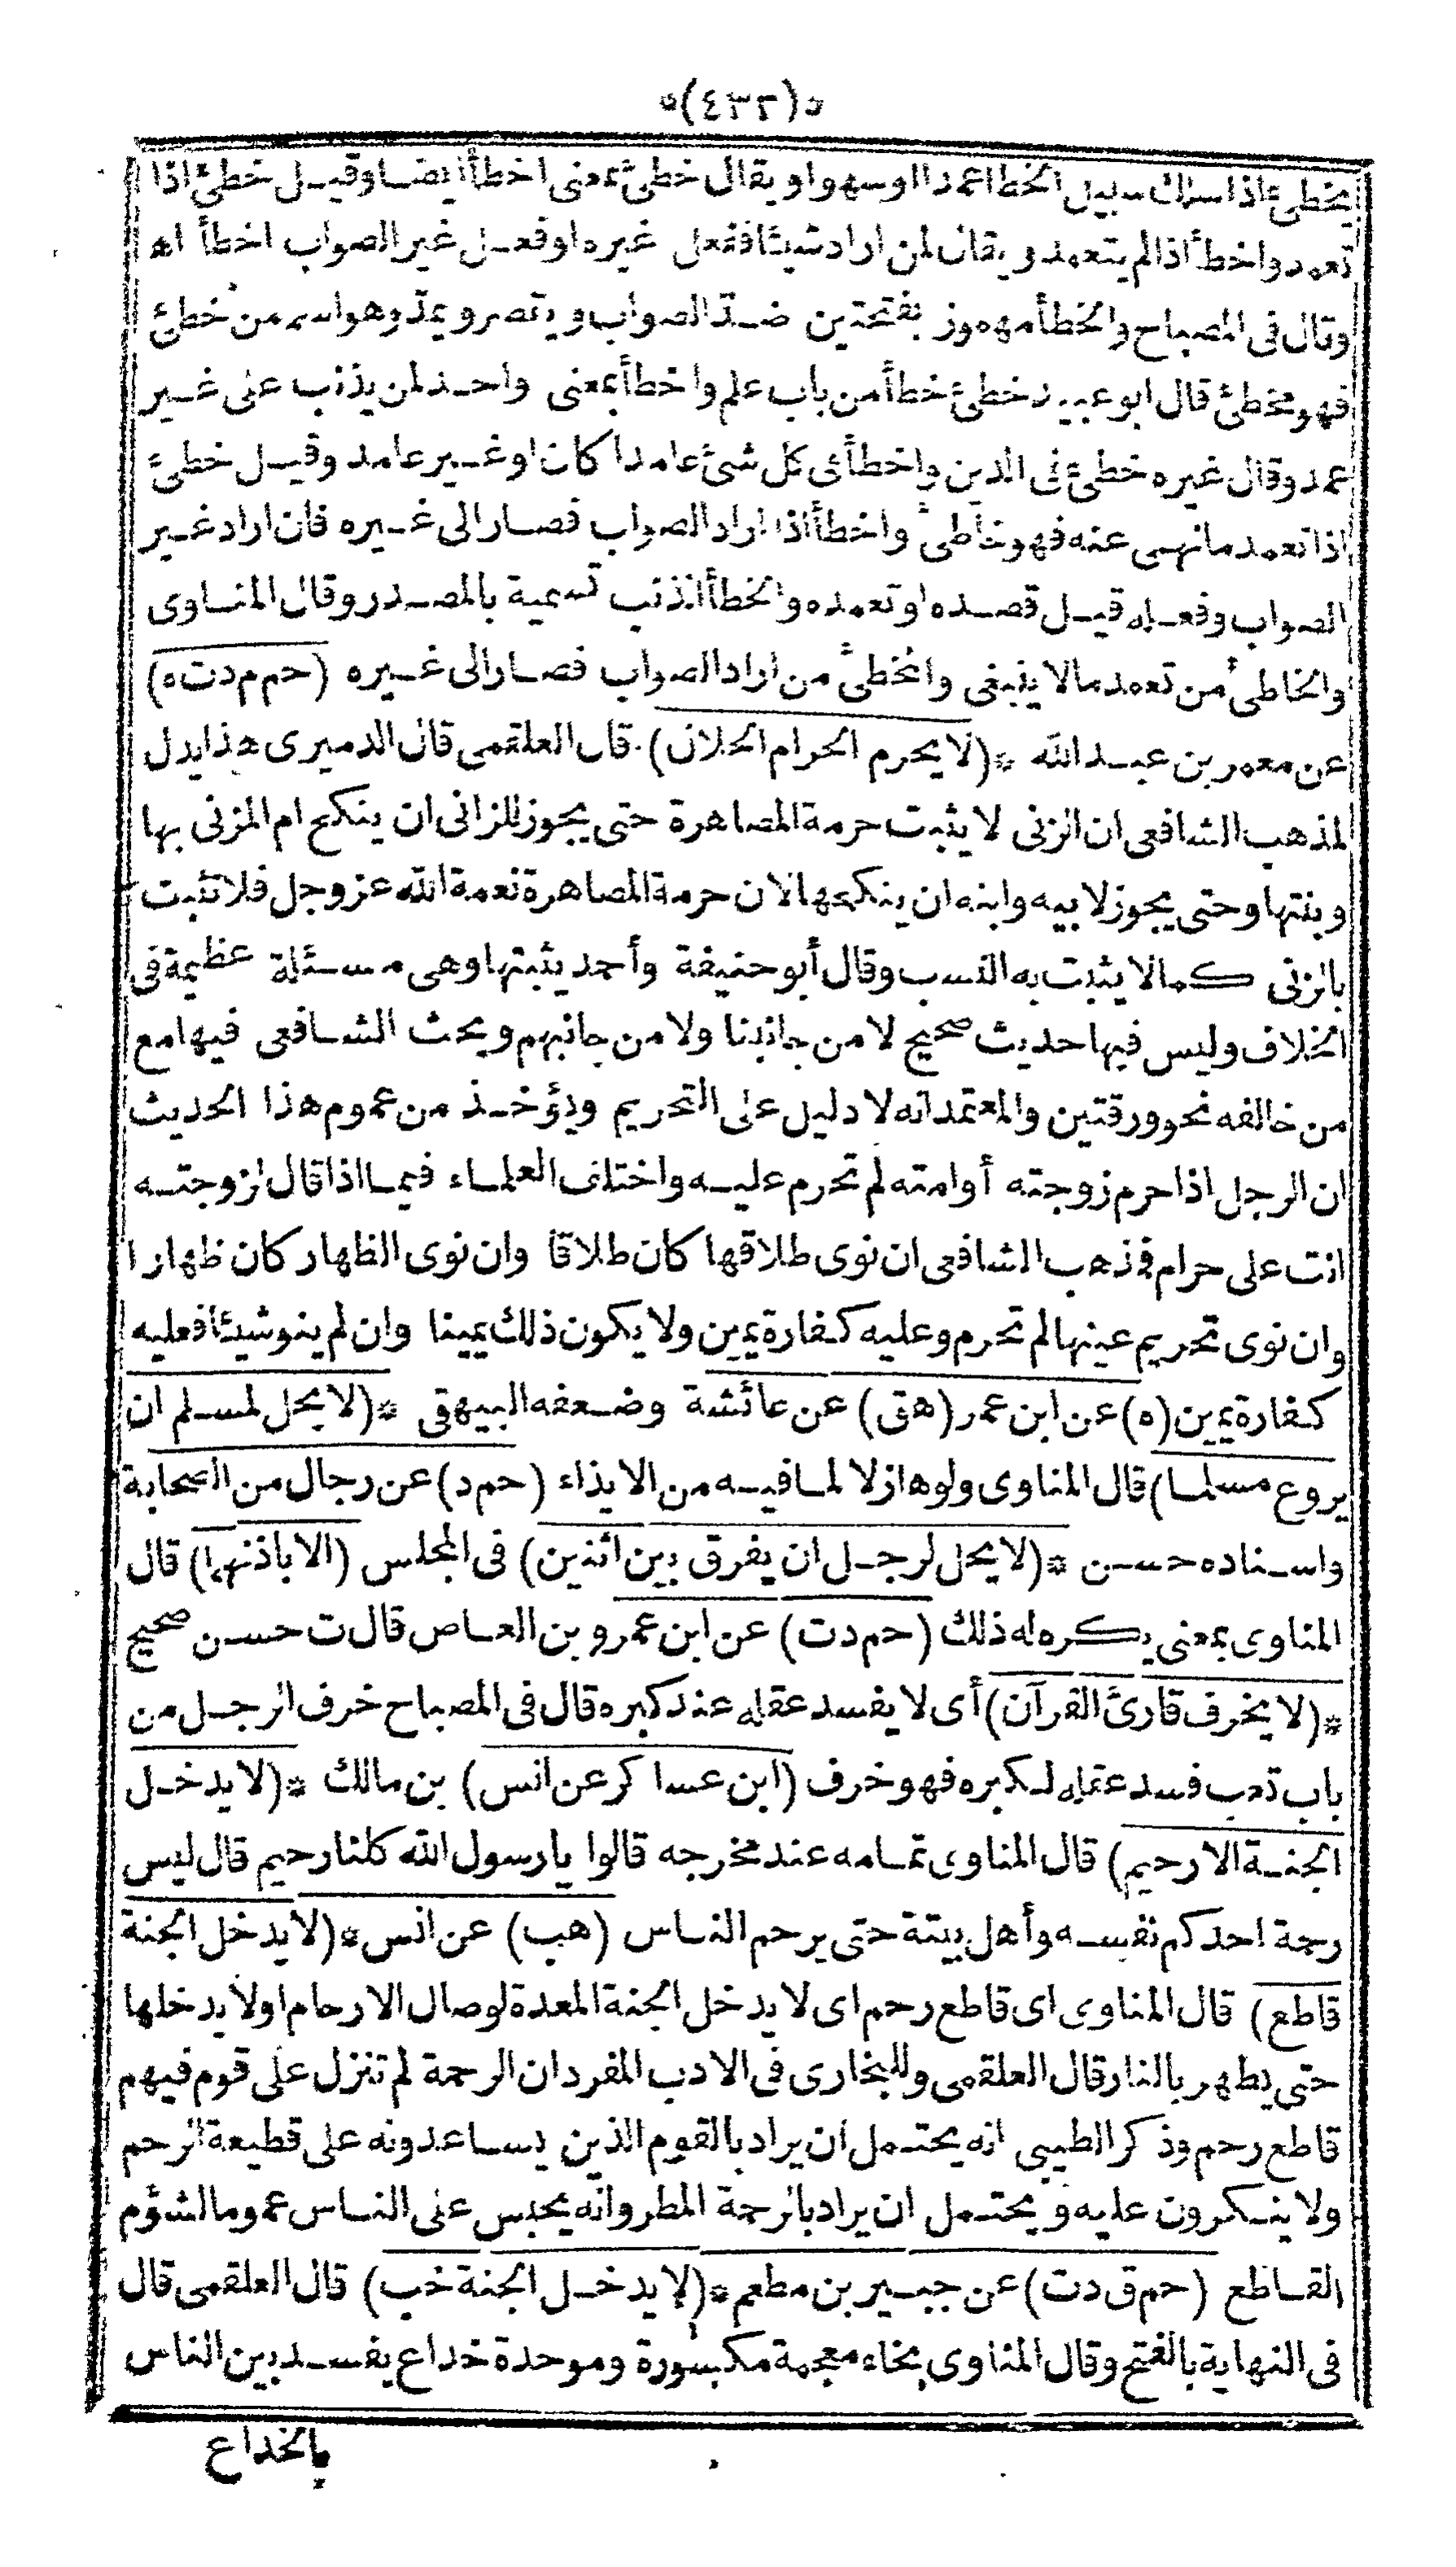 *(٤٣٢)*
يخطئ اذا سلك سبيل الخطا عمدا او سهوا ويقال خطئ بمعنى اخطأ ايضا وقيل خطئ اذا
تعمد واخطأ اذا لم يتعمد ويقال لمن اراد شيئا ففعل غيره او فعل غير الصواب اخطأ اه
وقال فى المصباح والخطأ مهموز بفتحتين ضد الصواب ويقصر ويمد وهو اسم من خطئ
فهو مخطئ قال ابو عبيد خطئ خطأ من باب علم واخطأ بمعنى واحد لمن يذنب على غير
عمد وقال غيره خطئ فى الدين واخطأ فى كل شئ عامدا كان او غير عامد وقيل خطئ
اذا تعمد ما نهى عنه فهو خاطئ واخطأ اذا اراد الصواب فصار الى غيره فان اراد غير
الصواب وفعله قيل قصده او تعمده والخطأ الذنب تسمية بالمصدر وقال المناوى
والخاطئ من تعمد ما لا ينبغى والمخطئ من اراد الصواب فصار الى غيره (حم م د ت ه)
عن معمر بن عبد الله *(لا يحرم الحرام الحلال) قال العلقمى قال الدميرى هذا يدل
لمذهب الشافعى ان الزنى لا يثبت حرمة المصاهرة حتى يجوز للزانى ان ينكح ام المزنى بها
وبنتها وحتى يجوز لابيه وابنه ان ينكحها لان حرمة المصاهرة نعمة الله عز وجل فلا تثبت
بالزنى كما لا يثبت به النسب وقال أبو حنيفة وأحمد يثبتها وهى مسئلة عظيمة فى
الخلاف وليس فيها حديث صحيح لا من جانبنا ولا من جانبهم وبحث الشافعى فيها مع
من خالفه نحو ورقتين والمعتمد انه لا دليل على التحريم ويؤخذ من عموم هذا الحديث
ان الرجل اذا حرم زوجته أو امته لم تحرم عليه واختلف العلماء فيما اذا قال لزوجته
انت على حرام فذهب الشافعى ان نوى طلاقها كان طلاقا وان نوى الظهار كان ظهارا
وان نوى تحريم عينها لم تحرم وعليه كفارة يمين ولا يكون ذلك يمينا وان لم ينو شيئا فعليه
كفارة يمين (ه) عن ابن عمر (هق) عن عائشة وضعفه البيهقى *(لا يحل لمسلم ان
يروع مسلما) قال المناوى ولو هازلا لما فيه من الايذاء (حم د) عن رجال من الصحابة
واسناده حسن *(لا يحل لرجل ان يفرق بين اثنين) فى المجلس (الا باذنهما) قال
المناوى بمعنى يكره له ذلك (حم د ت) عن ابن عمرو بن العاص قال ت حسن صحيح
*(لا يخرف قارئ القرآن) أى لا يفسد عقله عند كبره قال فى المصباح خرف الرجل من
باب تعب فسد عقله لكبره فهو خرف (ابن عساكر عن انس) بن مالك *(لا يدخل
الجنة الا رحيم) قال المناوى تمامه عند مخرجه قالوا يا رسول الله كلنا رحيم قال ليس
رحمة احدكم نفسه وأهل بيته حتى يرحم الناس (هب) عن انس *(لا يدخل الجنة
قاطع) قال المناوى اى قاطع رحم اى لا يدخل الجنة المعدة لوصال الارحام او لا يدخلها
حتى يطهر بالنار قال العلقمى وللبخارى فى الادب المفرد ان الرحمة لم تنزل على قوم فيهم
قاطع رحم وذكر الطيبى انه يحتمل ان يراد بالقوم الذين يساعدونه على قطيعة الرحم
ولا ينكرون عليه ويحتمل ان يراد بالرحمة المطر وانه يحبس على الناس عموما لشؤم
القاطع (حم ق د ت) عن جبير بن مطعم *(لا يدخل الجنة خب) قال العلقمى قال
فى النهاية بالفتح وقال المناوى بخاء معجمة مكسورة وموحدة خداع يفسد بين الناس
بالخداع